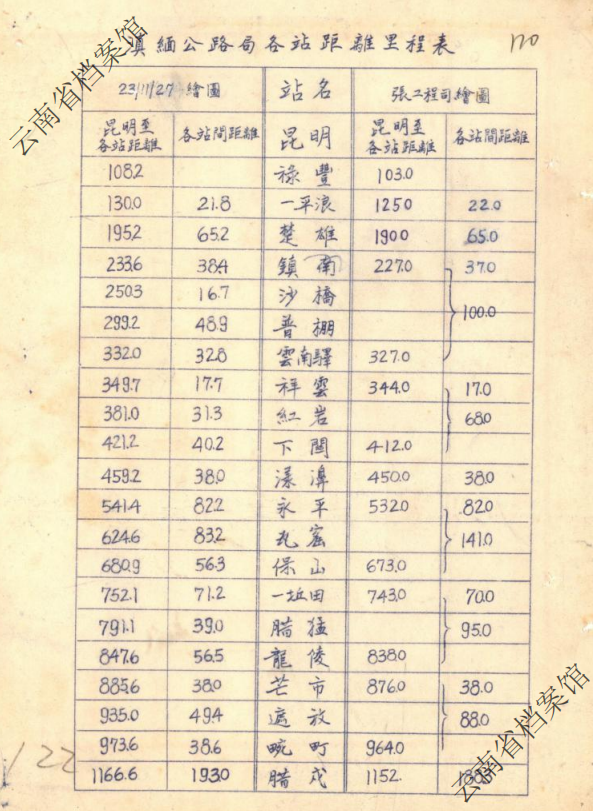 滇緬公路局各站距離里程表
170
云南省档案馆
23/11/27 繪圖 站名 張工程司繪圖
昆明至各站距離 各站間距離 昆明 昆明至各站距離 各站間距離
108.2 祿豐 103.0
130.0 21.8 一平浪 125.0 22.0
195.2 65.2 楚雄 190.0 65.0
233.6 38.4 鎮南 227.0 37.0
250.3 16.7 沙橋
299.2 48.9 普棚 100.0
332.0 32.8 雲南驛 327.0
349.7 17.7 祥雲 344.0 17.0
381.0 31.3 紅岩 68.0
421.2 40.2 下關 412.0
459.2 38.0 漾濞 450.0 38.0
541.4 82.2 永平 532.0 82.0
624.6 83.2 瓦窰 141.0
680.9 56.3 保山 673.0
752.1 71.2 一坵田 743.0 70.0
791.1 39.0 腊猛 95.0
847.6 56.5 龍陵 838.0
885.6 38.0 芒市 876.0 38.0
935.0 49.4 遮放 88.0
973.6 38.6 畹町 964.0
1166.6 193.0 腊戍 1152.
122
云南省档案馆